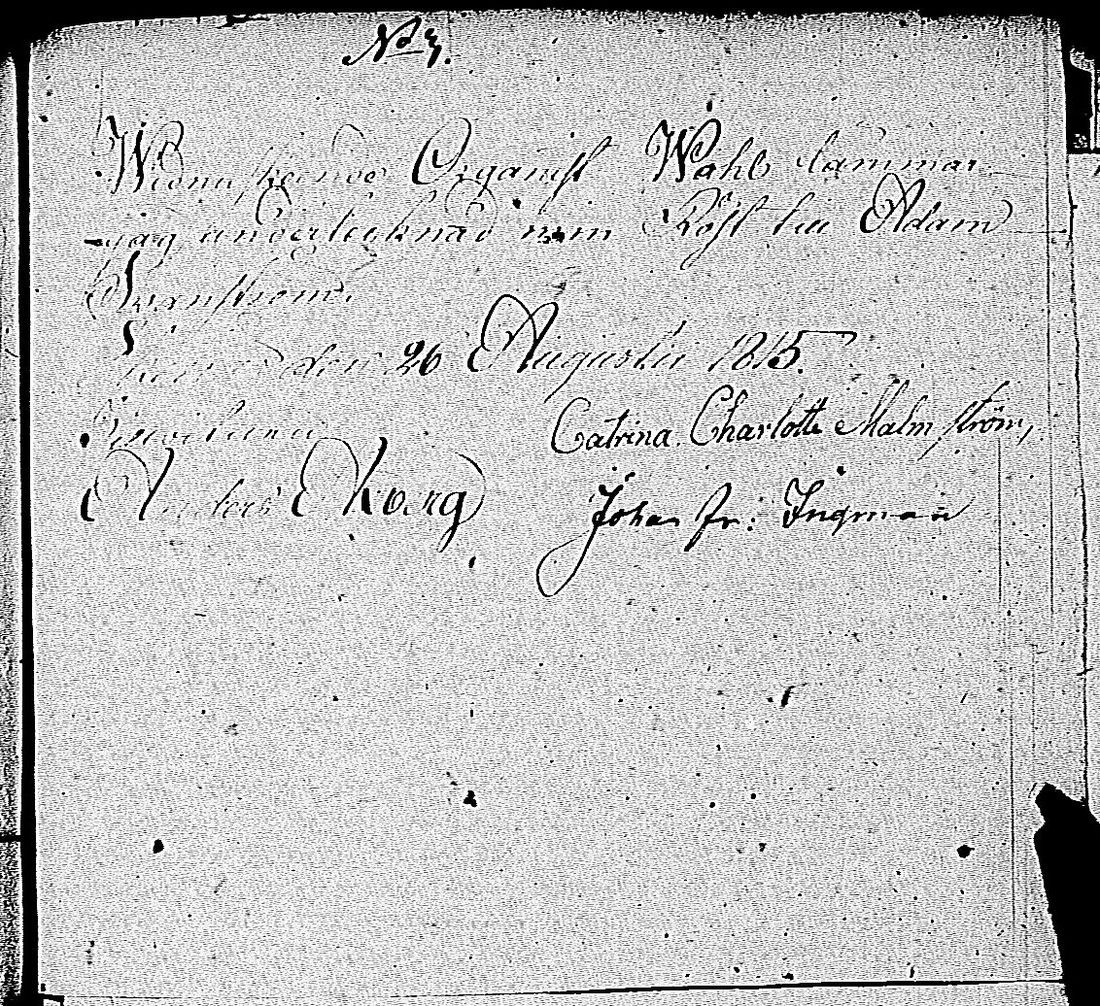 No 7.
Wid nu skeende Organist Wahl lämmar
jag undertecknad min Röst till Adam
Swanström.
den 26 Augusti 1815.
Catrina Charlotta Malmström,
Anders Skorg
Johan Fr: Ingman